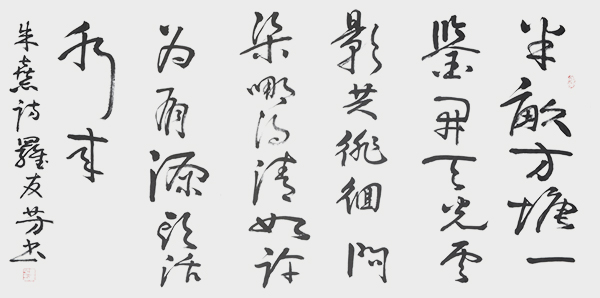 半畝方塘一
鑒開天光雲
影共徘徊問
渠哪得清如許
为有源頭活
水來
朱熹詩羅友芳书